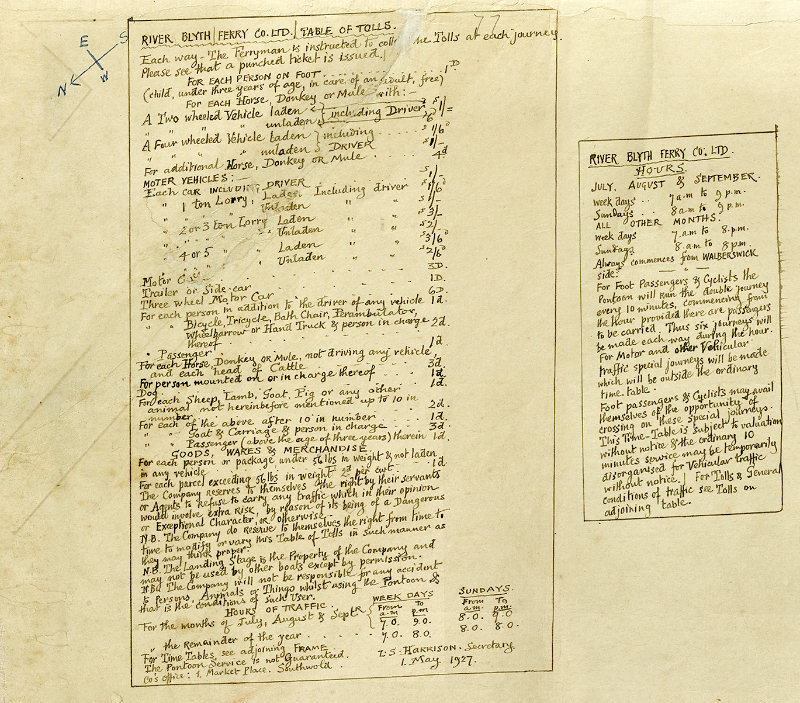 E S
N W
77
RIVER BLYTH FERRY CO. LTD. TABLE OF TOLLS.
Each way - The Ferryman is instructed to coll the Tolls at each journey.
Please see that a punched ticket is issued.
FOR EACH PERSON ON FOOT 1D
(child, under three years of age, in care of an adult, free)
FOR EACH Horse, Donkey or Mule with:-
A Two wheeled Vehicle laden } including Driver 1/=
" " " unladen 6D
A Four wheeled Vehicle laden } including 1/6D
" " " unladen DRIVER 1/-
For additional Horse, Donkey OR Mule 4d
MOTOR VEHICLES:-
Each car INCLUDING DRIVER 1/-
" 1 ton Lorry, Laden Including driver 1/6
" Unladen " " 1/-
" 2 or 3 ton Lorry Laden " " 3/-
" " Unladen " " 2/-
" 4 or 5 " " Laden " " 3/6
" " Unladen " " 2/6
Motor 3D.
Trailer or Side-car 1D.
Three Wheel Motor Car 6D.
For each person in addition to the driver of any vehicle 1d.
" Bicycle, Tricycle, Bath Chair, Perambulator,
Wheelbarrow or Hand Truck & person in charge
thereof 2d.
" Passenger 1d
For each Horse, Donkey, or Mule, not driving any vehicle
and each head of Cattle 3d.
For person mounted on or in charge thereof 1d.
Dog. 1d.
For each Sheep, Lamb, Goat, Pig or any other
animal not hereinbefore mentioned up to 10 in
number 2d.
For each of the above after 10 in number 1d.
" " Goat & Carriage & person in charge 3d.
" " Passenger (above the age of three years) therein 1d.
GOODS, WARES & MERCHANDISE
For each person or package under 56 lbs in weight & not laden
in any vehicle 1d.
For each parcel exceeding 56 lbs in weight 2d per cwt.
The Company reserves to themselves the right by their servants
or Agents to refuse to carry any traffic which in their opinion
would involve extra Risk, by reason of its being of a Dangerous
or Exceptional Character, or otherwise.
N.B. The Company do reserve to themselves the right from time to
time to modify or vary this Table of Tolls in such manner as
they may think proper.
N.B. The Landing Stage is the Property of the Company and
may not be used by other boats except by permission.
N.B. The Company will not be responsible for any accident
to Persons, Animals or Things whilst using the Pontoon &
that is the conditions of such User.
HOURS OF TRAFFIC. WEEK DAYS SUNDAYS.
From To From To
a.m. p.m. a.m. p.m.
For the months of July, August & Septr { 7.0. 9.0. 8.0. 9.0
" the Remainder of the year 7.0. 8.0. 8.0. 8.0.
For Time Tables, see adjoining FRAME
The Pontoon Service is not Guaranteed.
Co's Office: 1, Market Place. Southwold.
T.S. HARRISON. Secretary.
1. May 1927.
RIVER BLYTH FERRY CO. LTD.
HOURS.
JULY, AUGUST & SEPTEMBER.
Week days 7 a.m to 9 p.m.
Sundays 8 a.m to 9 p.m.
ALL OTHER MONTHS.
Week days 7 a.m to 8.pm.
Sundays 8.am to 8 pm.
Always commences from WALBERSWICK
side.
For Foot Passengers & Cyclists the
Pontoon will run the double journey
every 10 minutes, commencing from
the hour provided there are passengers
to be carried. Thus six journeys will
be made each way during the hour.
For Motor and other Vehicular
traffic special journeys will be made
which will be outside the ordinary
time table.
Foot passengers & Cyclists may avail
themselves of the opportunity of
crossing on these special journeys.
This Time-Table is Subject to valuation
without notice & the ordinary 10
minutes service may be temporarily
disorganised for Vehicular traffic
without notice. For Tolls & General
conditions of traffic see Tolls on
adjoining table.